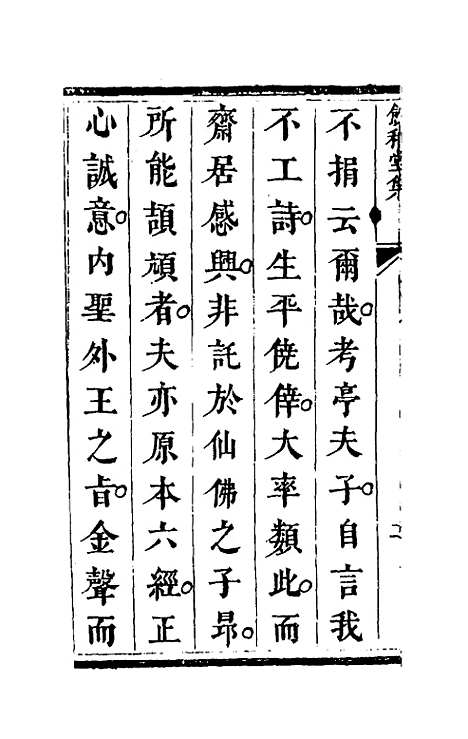 不捐云爾哉。考亭夫子。自言我
不工詩。生平僥倖。大率類此。而
齋居感興。非託於仙佛之子昂。
所能頡頏者。夫亦原本六經。正
心誠意。內聖外王之旨。金聲而